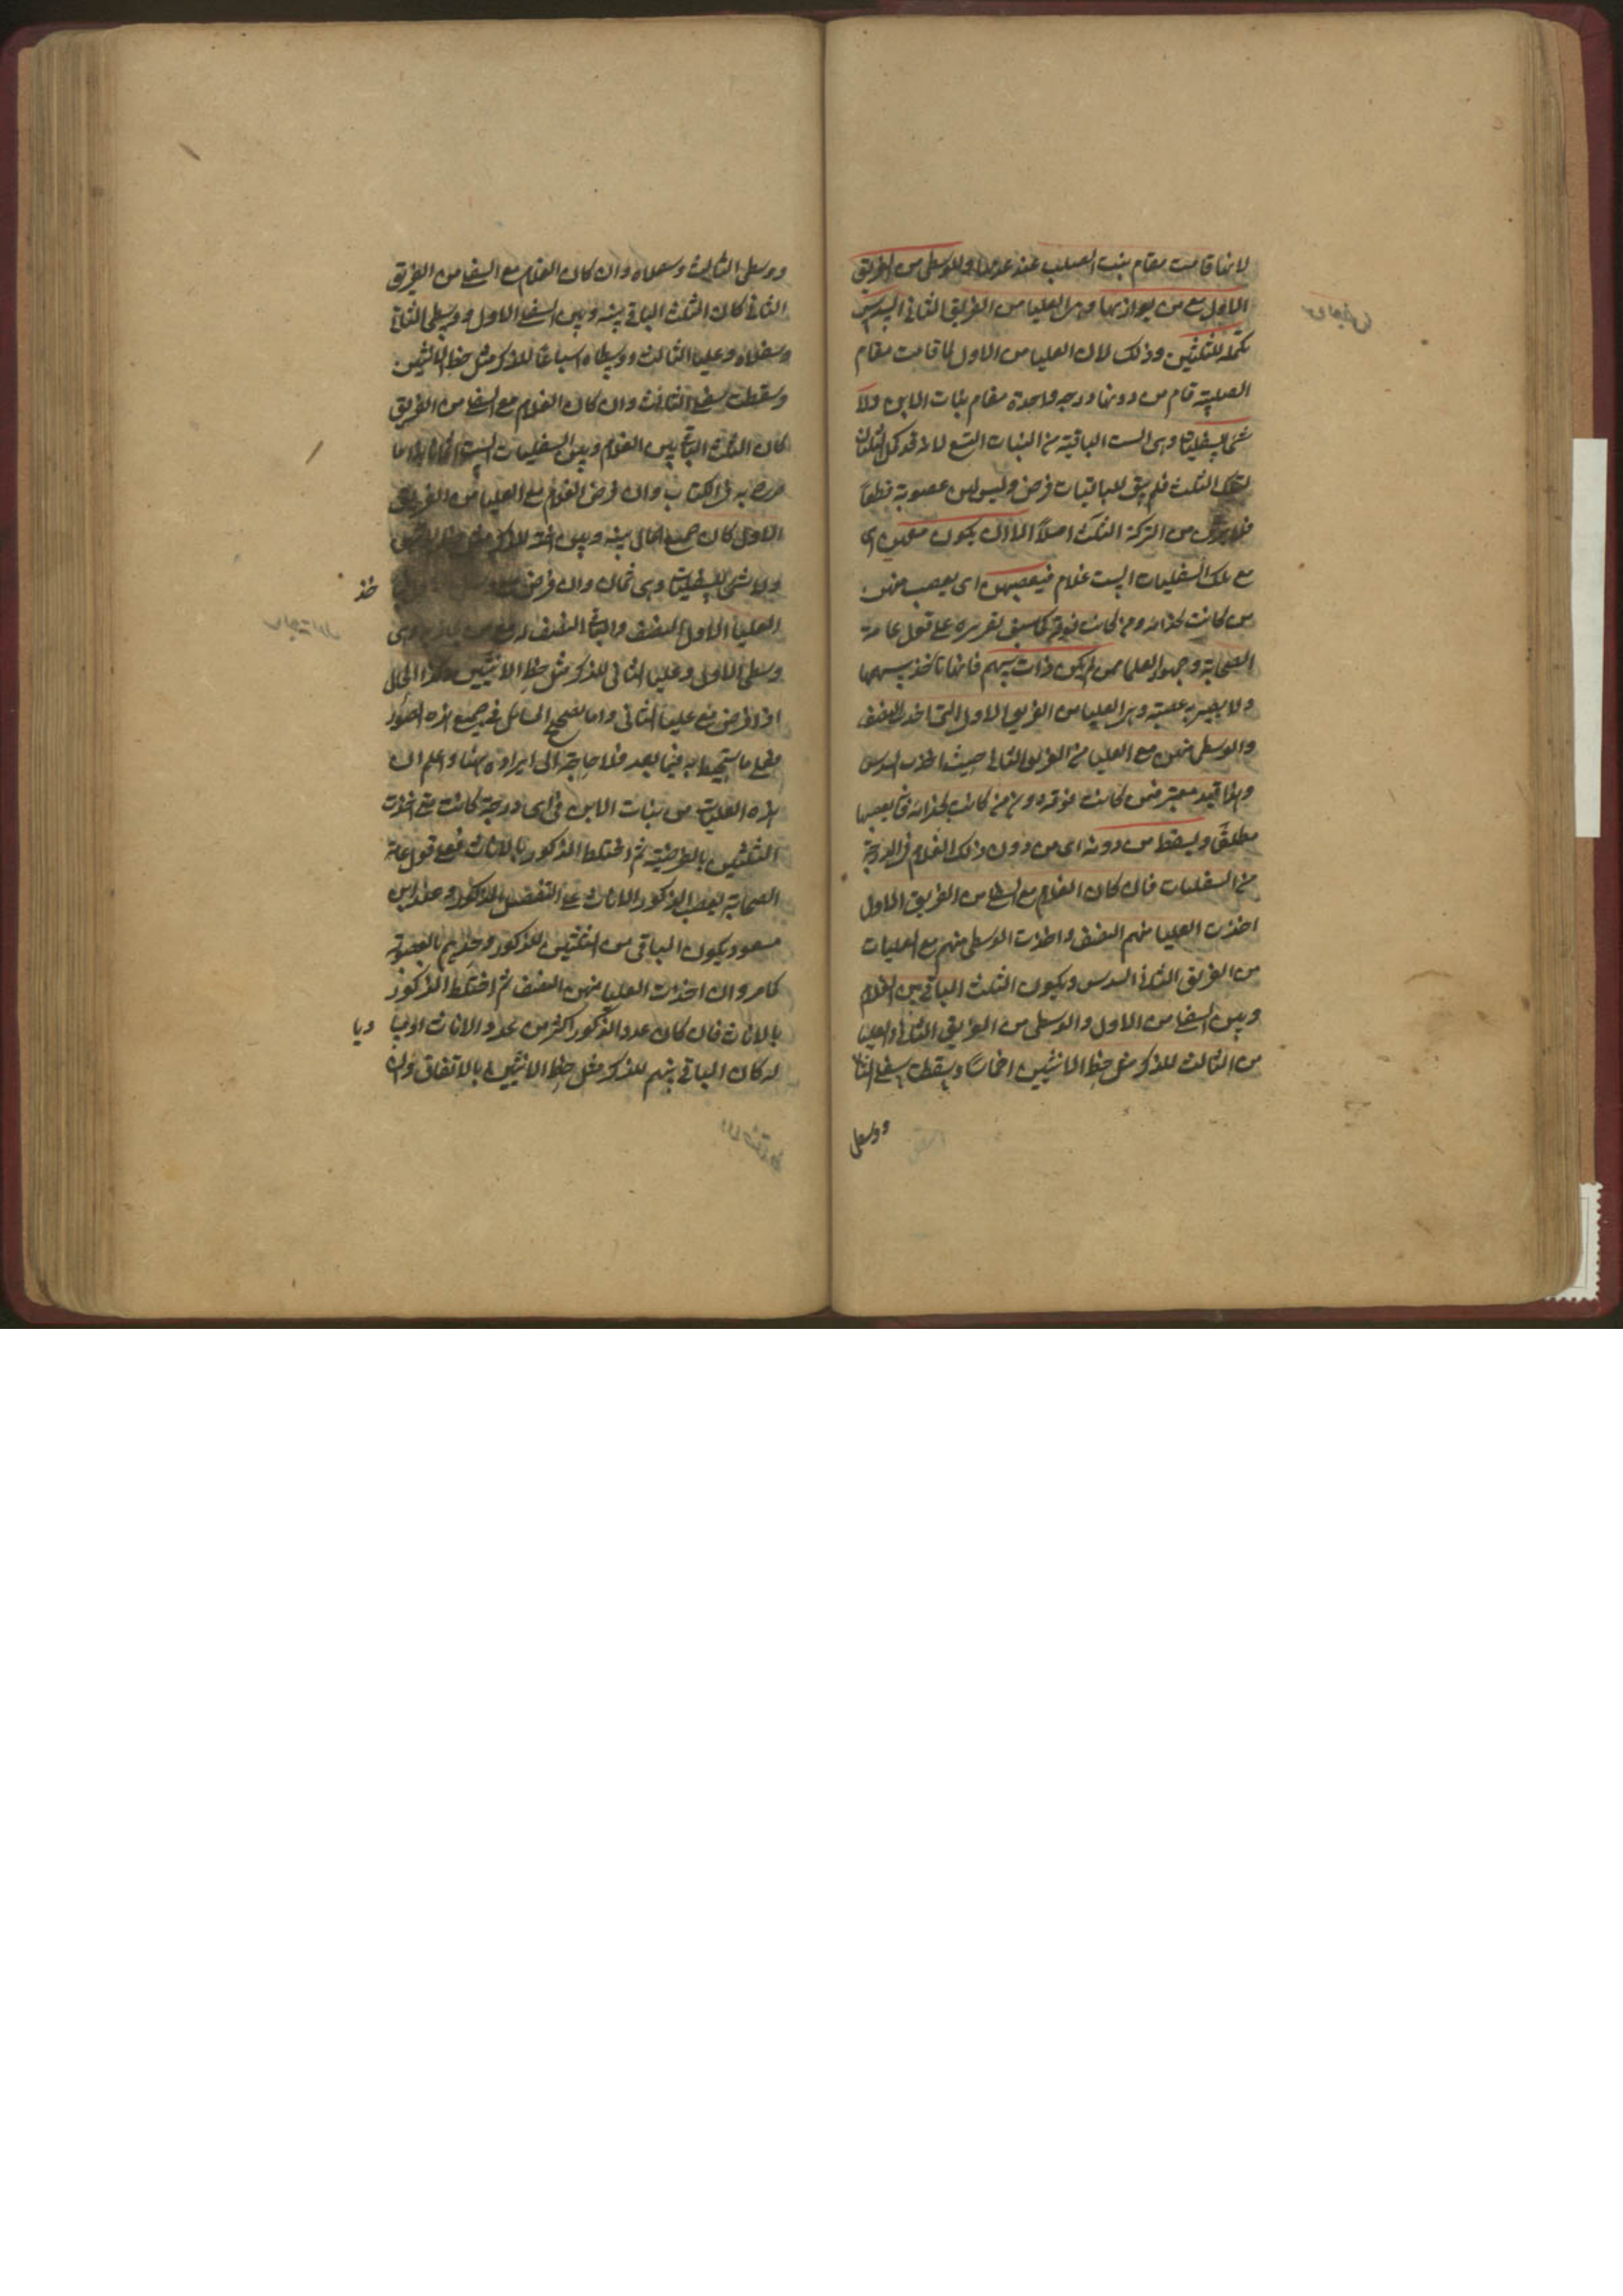 لانها قامت مقام بنت الصلب عند عدمها وللوسطى من الفريق
الاول مع من يوازيها وهى العليا من الفريق الثانى السدس
تكملة للثلثين وذلك لان العليا من الاول لما قامت مقام
الصلبية قام من دونها درجة واحدة مقام بنات الابن ولا
شئ للسفليات وهى الست الباقية من البنات التسع لانه قد كمل الثلثان
فلم يبق للباقيات فرض وليس لهن عصوبة قطعا
من التركة اصلا الا ان يكون معهن اى
مع تلك السفليات الست غلام فيعصبهن اى يعصب منهن
من كانت بحذائه ومن كانت فوقه كما سبق تقريره على قول عامة
الصحابة وجمهور العلما ممن لم يكن ذات سهم فانها تاخذ سهمها
ولا يصير به عصبة وهى العليا من الفريق الاول التى اخذت النصف
والوسطى منهن مع العليا من الفريق الثانى حيث اخذت السدس
وهذا قيد معتبر فمن كانت فوقه دون من كانت بحذائه فانه يعصبها
مطلقا ويسقط من دونه اى من دون ذلك الغلام فى الدرجة
من السفليات فان كان الغلام مع السفلى من الفريق الاول
اخذت العليا منهم النصف واخذت الوسطى منهم مع العليا
من الفريق الثانى السدس ويكون الثلث الباقى بين الغلام
وبين السفلى من الاول والوسطى من الفريق الثانى والعليا
من الثالث للذكر مثل حظ الانثيين اخماسا ويسقط سفلى الثانى
ووسطى
ووسطى الثالث وسفلاه وان كان الغلام مع السفلى من الفريق
الثانى كان الثلث الباقى بينه وبين السفلى الاول ووسطى الثانى
وسفلاه وعليا الثالث ووسطاه اسباعا للذكر مثل حظ الانثيين
وسقطت سفلى الثالث وان كان الغلام مع السفلى من الفريق
كان الثلث الباقى بين الغلام وبين السفليات الست اثمانا
به فى الكتاب وان فرض الغلام مع العليا من الفريق
الاول كان جميع المال بينه وبين اخته للذكر مثل حظ الانثيين
ولا شئ للسفليات وهى ثمان وان فرض
العليا الاول النصف
وسطى الاول وعليا الثانى للذكر مثل حظ الانثيين وكذا الحال
اذا فرض مع عليا الثانى واما تصحيح المسائل فى جميع هذه الصور
فعلى ما ستحيط به فيما بعد فلا حاجة الى ايراده هنا واعلم ان
هذه العليات من بنات الابن فى اى درجة كانت متى اخذت
الثلثين بالفرضية ثم اختلط الذكور بالاناث فعلى قول عامة
الصحابة يعصب الذكور الاناث على التفصيل المذكور وعند ابن
مسعود يكون الباقى من الثلثين للذكور وحدهم بالعصوبة
كما مر وان اخذت العليا منهن النصف ثم اختلط الذكور
بالاناث فان كان عدد الذكور اكثر من عدد الاناث او مسا
ويا
له كان الباقى بينهم للذكر مثل حظ الانثيين بالاتفاق وان